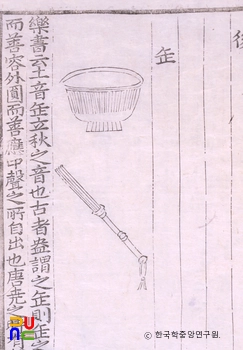 缶
樂書云土音缶立秋之音也古者盎謂之缶則缶之
而善容外圓而善應中聲之所自出也唐堯之
© 한국학중앙연구원.